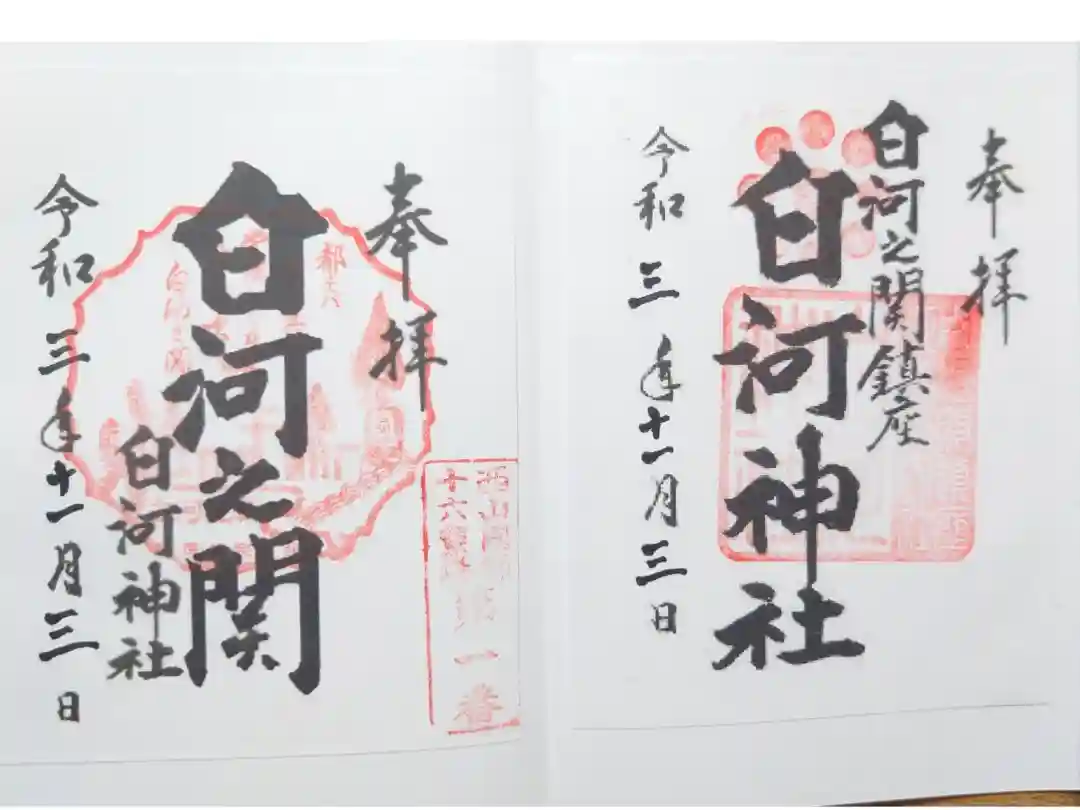 奉拝
白河之関鎮座
白河神社
令和三年十一月三日
奉拝
白河之関
白河神社
令和三年十一月三日
十六
第一番